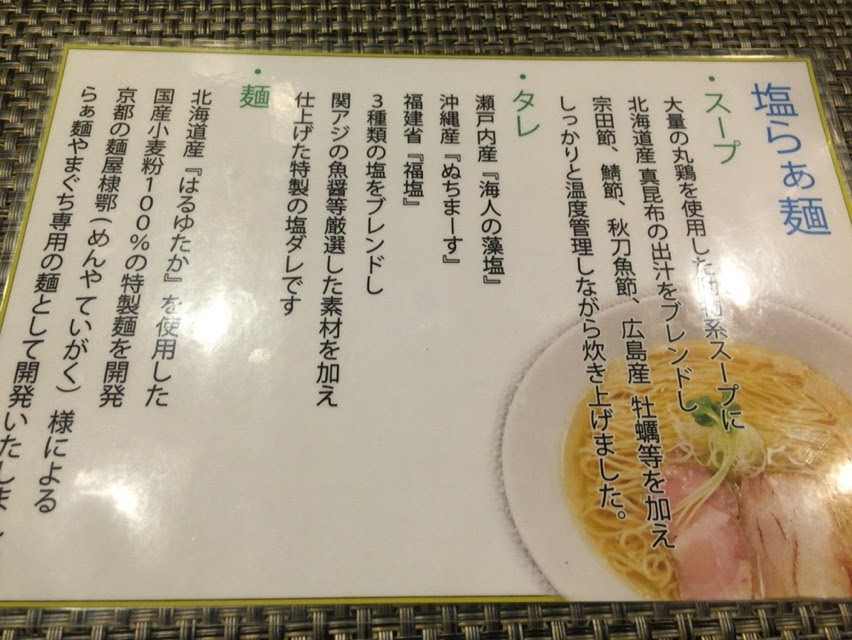 塩らぁ麺
・スープ
大量の丸鶏を使用した動物系スープに
北海道産 真昆布の出汁をブレンドし
宗田節、鯖節、秋刀魚節、広島産 牡蠣等を加え
しっかりと温度管理しながら炊き上げました。
・タレ
瀬戸内産『海人の藻塩』
沖縄産『ぬちまーす』
福建省『福塩』
3種類の塩をブレンドし
関アジの魚醤等厳選した素材を加え
仕上げた特製の塩ダレです
・麺
北海道産『はるゆたか』を使用した
国産小麦粉100%の特製麺を開発
京都の麺屋棣鄂(めんや ていがく) 様による
らぁ麺やまぐち専用の麺として開発いたしまし